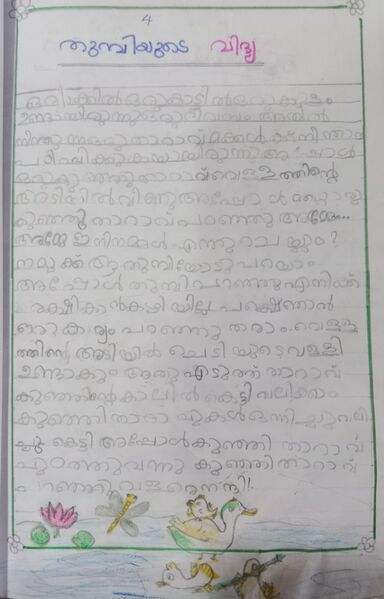 4
തുമ്പിയുടെ വിദ്യ
ഒരിടത്തിൽ ഒരു കാട്ടിൽ ഒരു കുളം
ഉണ്ടായിരുന്നു ഒരു ദിവസം അതിൽ
നീന്തുന്ന ഒരു താറാവ് മക്കൾക്ക് നീന്താൻ
പഠിപ്പിക്കുകയായിരുന്നു അപ്പോൾ
ഒരു കുഞ്ഞു താറാവ് വെള്ളത്തിന്റെ
അടിയിൽ വീണു അപ്പോൾ മറ്റൊരു
കുഞ്ഞു താറാവ് പറഞ്ഞു അമ്മേ...
അമ്മേ ഇനി നമ്മൾ എന്തു ചെയ്യും?
നമുക്ക് ആ തുമ്പിയോടു പറയാം
അപ്പോൾ തുമ്പി പറഞ്ഞു എനിക്ക്
രക്ഷിക്കാൻ കഴിയില്ല പക്ഷെ ഞാൻ
ഒരു കാര്യം പറഞ്ഞു തരാം. വെള്ള
ത്തിന്റെ അടിയിൽ ചെടിയുടെ വള്ളി
ഉണ്ടാകും അതു എടുത്ത് താറാവ്
കുഞ്ഞിന്റെ കാലിൽ കെട്ടി വലിക്കാം
കുഞ്ഞി താറാവുകൾ ഒന്നിച്ചു വലി
ച്ചു കെട്ടി അപ്പോൾ കുഞ്ഞി താറാവ്
പുറത്തു വന്നു കുഞ്ഞി താറാവ്
പറഞ്ഞു വളരെ നന്ദി!.